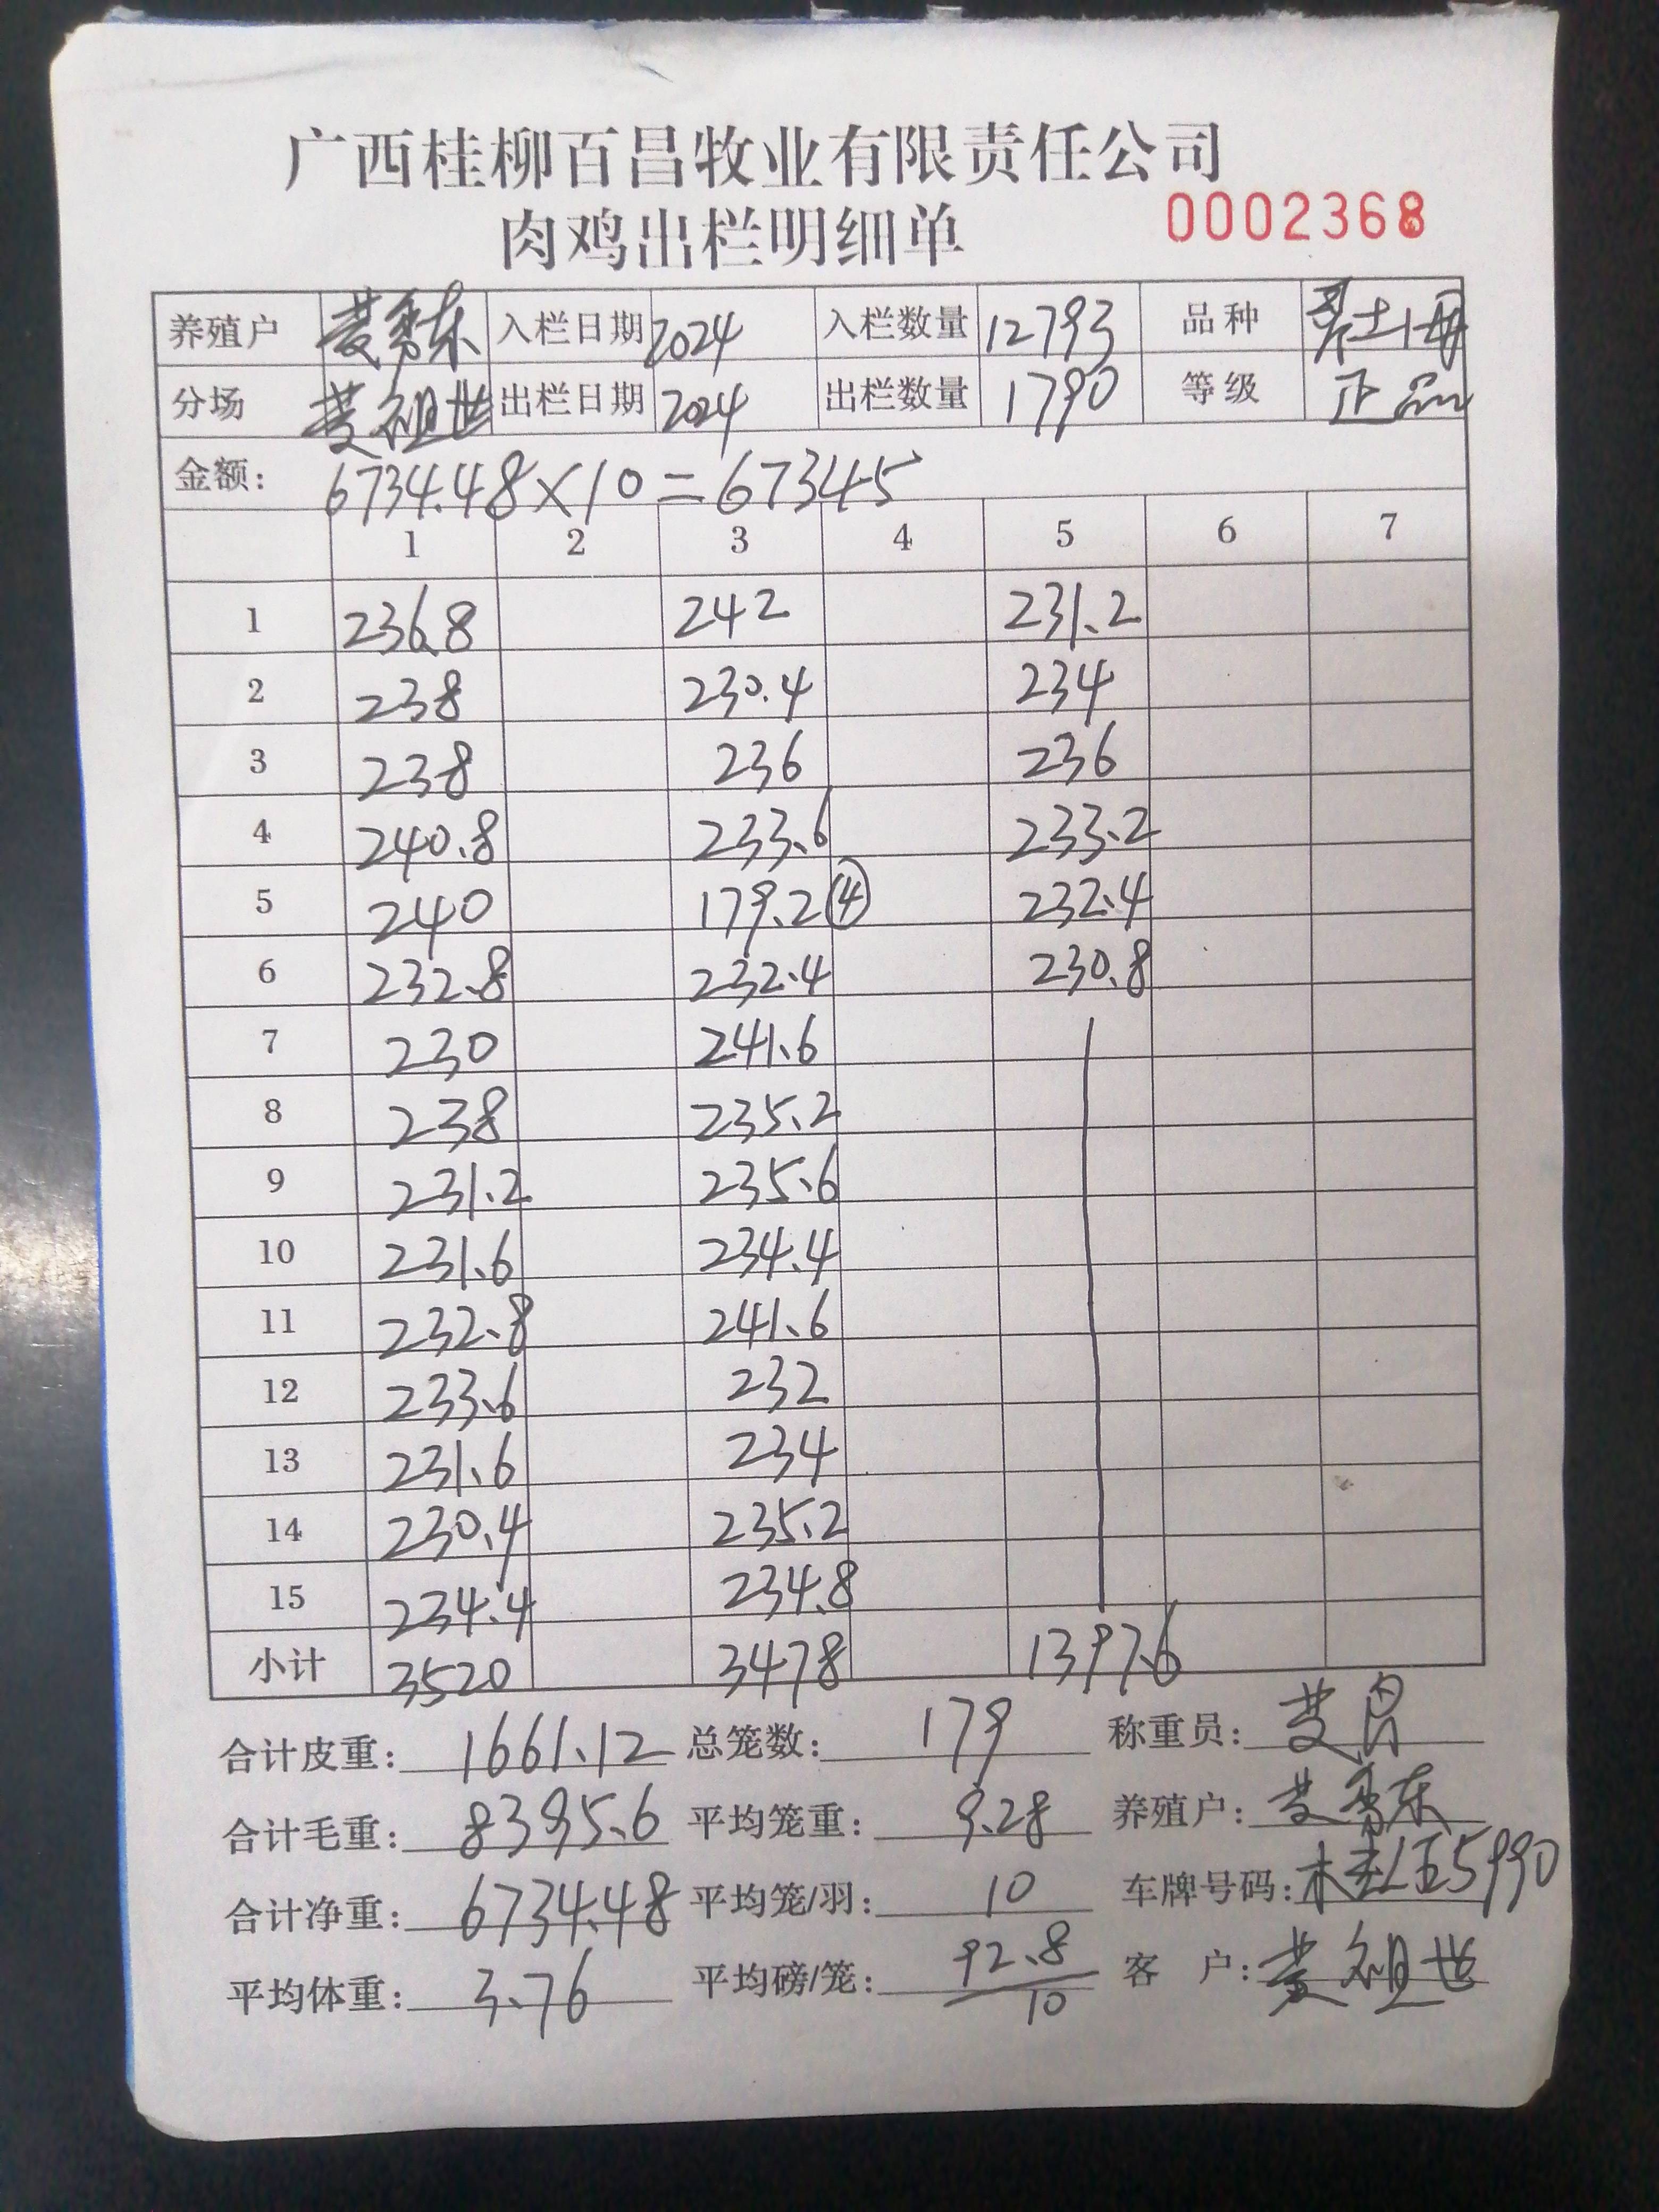 广西桂柳百昌牧业有限责任公司
肉鸡出栏明细单 0002368
养殖户 黄秀东 入栏日期 2024 入栏数量 12793 品种 土母
分场 黄祖世 出栏日期 2024 出栏数量 1790 等级 正品
金额: 6734.48×10=67345
1 2 3 4 5 6 7
1 236.8 242 231.2
2 238 230.4 234
3 238 236 236
4 240.8 233.6 233.2
5 240 179.2 ④ 232.4
6 232.8 232.4 230.8
7 230 241.6
8 238 235.2
9 231.2 235.6
10 231.6 234.4
11 232.8 241.6
12 233.6 232
13 231.6 234
14 230.4 235.2
15 234.4 234.8
小计 3520 3478 1397.6
合计皮重: 1661.12 总笼数: 179 称重员: 黄
合计毛重: 8395.6 平均笼重: 9.28 养殖户: 黄秀东
合计净重: 6734.48 平均笼/羽: 10 车牌号码: 桂L55990
平均体重: 3.76 平均磅/笼: 92.8/10 客 户: 黄祖世